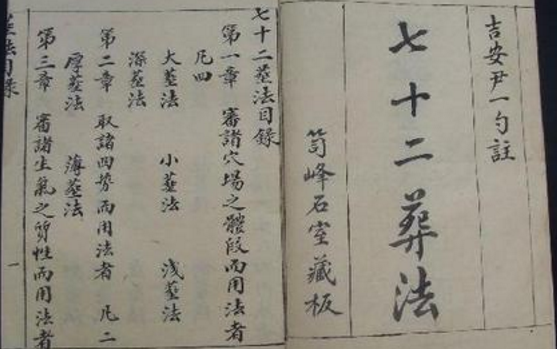 吉安尹一勺註
七十二葬法
笥峰石室藏板
七十二葬法目錄
第一章 審諸穴場之體段而用法者
凡四
大葬法 小葬法 淺葬法
深葬法
第二章 取諸四勢而用法者 凡二
厚葬法 薄葬法
第三章 審諸生氣之質性而用法者
葬法目錄
一